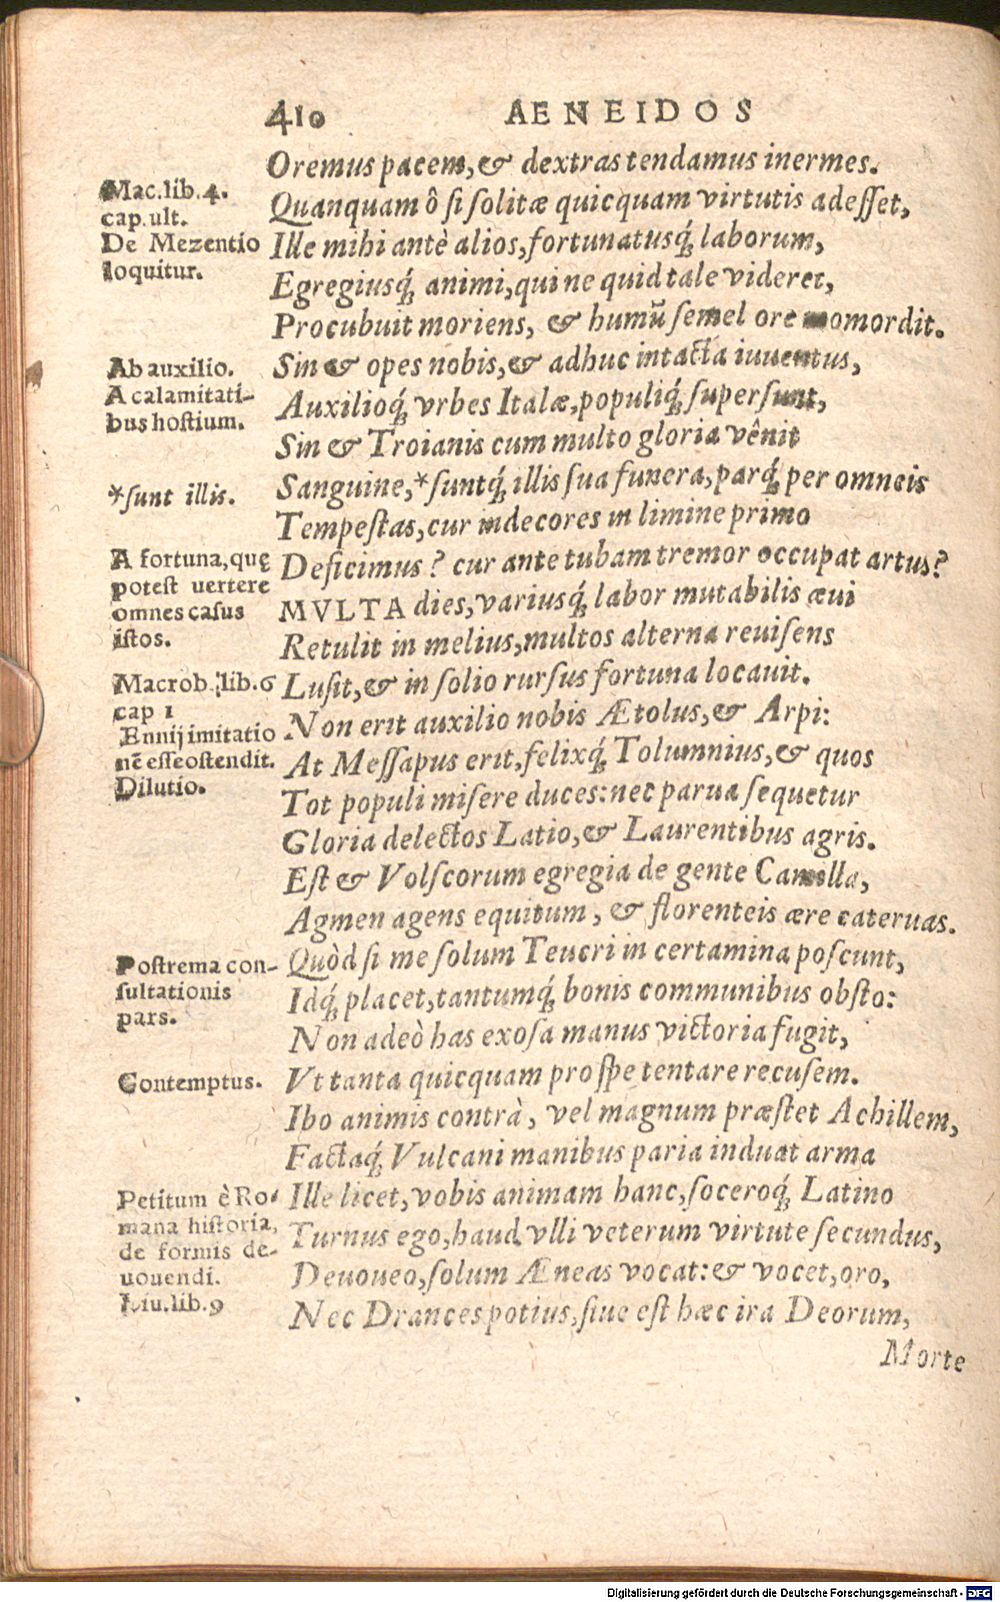 410 AENEIDOS
Oremus pacem, & dextras tendamus inermes.
Mac. lib. 4.
cap. ult.
De Mezentio
loquitur.
Quanquam ô si solitæ quicquam virtutis adesset,
Ille mihi antè alios, fortunatusq́; laborum,
Egregiusq́; animi, qui ne quid tale videret,
Procubuit moriens, & humũ semel ore momordit.
Ab auxilio.
A calamitati-
bus hostium.
Sin & opes nobis, & adhuc intacta iuuentus,
Auxilioq́; vrbes Italæ, populiq́; supersunt,
Sin & Troianis cum multo gloria vênit
*sunt illis.
Sanguine, *suntq́; illis sua funera, parq́; per omneis
Tempestas, cur indecores in limine primo
A fortuna, quę
potest uertere
omnes casus
istos.
Deficimus? cur ante tubam tremor occupat artus?
MVLTA dies, variusq́; labor mutabilis æui
Retulit in melius, multos alterna reuisens
Macrob. lib. 6
cap 1
Ennij imitatio
nē esse ostendit.
Dilutio.
Lusit, & in solio rursus fortuna locauit.
Non erit auxilio nobis Ætolus, & Arpi:
At Messapus erit, felixq́; Tolumnius, & quos
Tot populi misere duces: nec parua sequetur
Gloria delectos Latio, & Laurentibus agris.
Est & Volscorum egregia de gente Camilla,
Agmen agens equitum, & florenteis ære cateruas.
Postrema con-
sultationis
pars.
Quòd si me solum Teucri in certamina poscunt,
Idq́; placet, tantumq́; bonis communibus obsto:
Non adeò has exosa manus victoria fugit,
Contemptus.
Vt tanta quicquam pro spe tentare recusem.
Ibo animis contrà, vel magnum præstet Achillem,
Factaq́; Vulcani manibus paria induat arma
Petitum è Ro-
mana historia,
de formis de-
uouendi.
Liu. lib. 9
Ille licet, vobis animam hanc, soceroq́; Latino
Turnus ego, haud vlli veterum virtute secundus,
Deuoueo, solum Æneas vocat: & vocet, oro,
Nec Drances potius, siue est hæc ira Deorum,
Morte
Digitalisierung gefördert durch die Deutsche Forschungsgemeinschaft - DFG